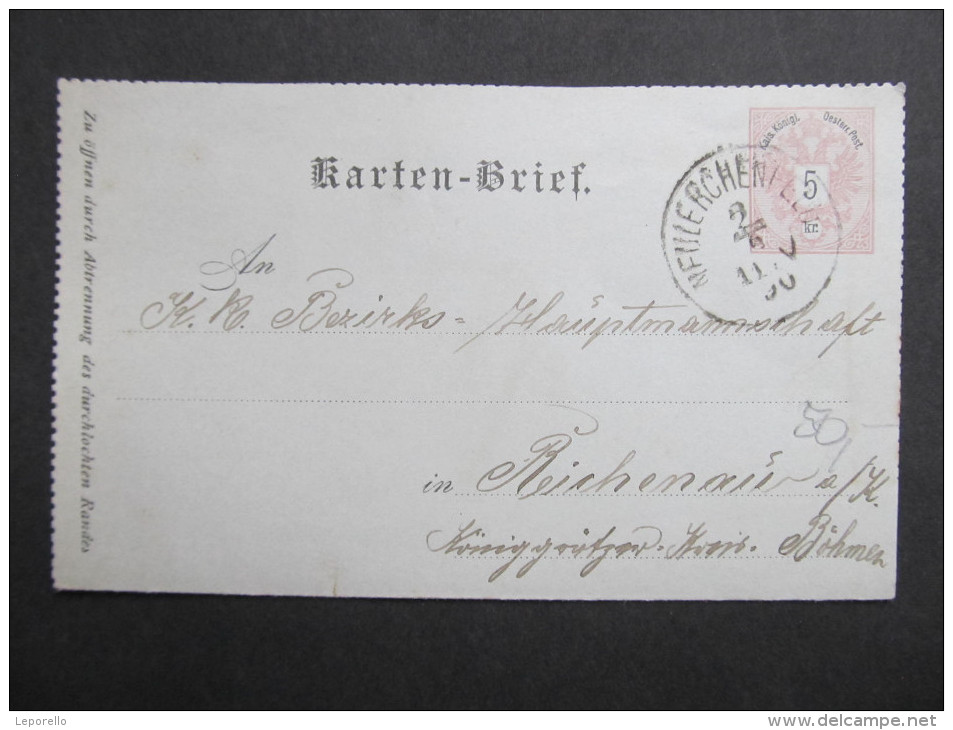 Karten-Brief.
Kais. Königl. Oesterr. Post.
5
kr.
NEULERCHENFELD
An
K. K. Bezirks= Hauptmannschaft
50,
in Reichenau a/K.
Königgrätzer-Kreis. Böhmen
Zu öffnen durch Abtrennung des durchlochten Randes
Leporello
www.delcampe.net